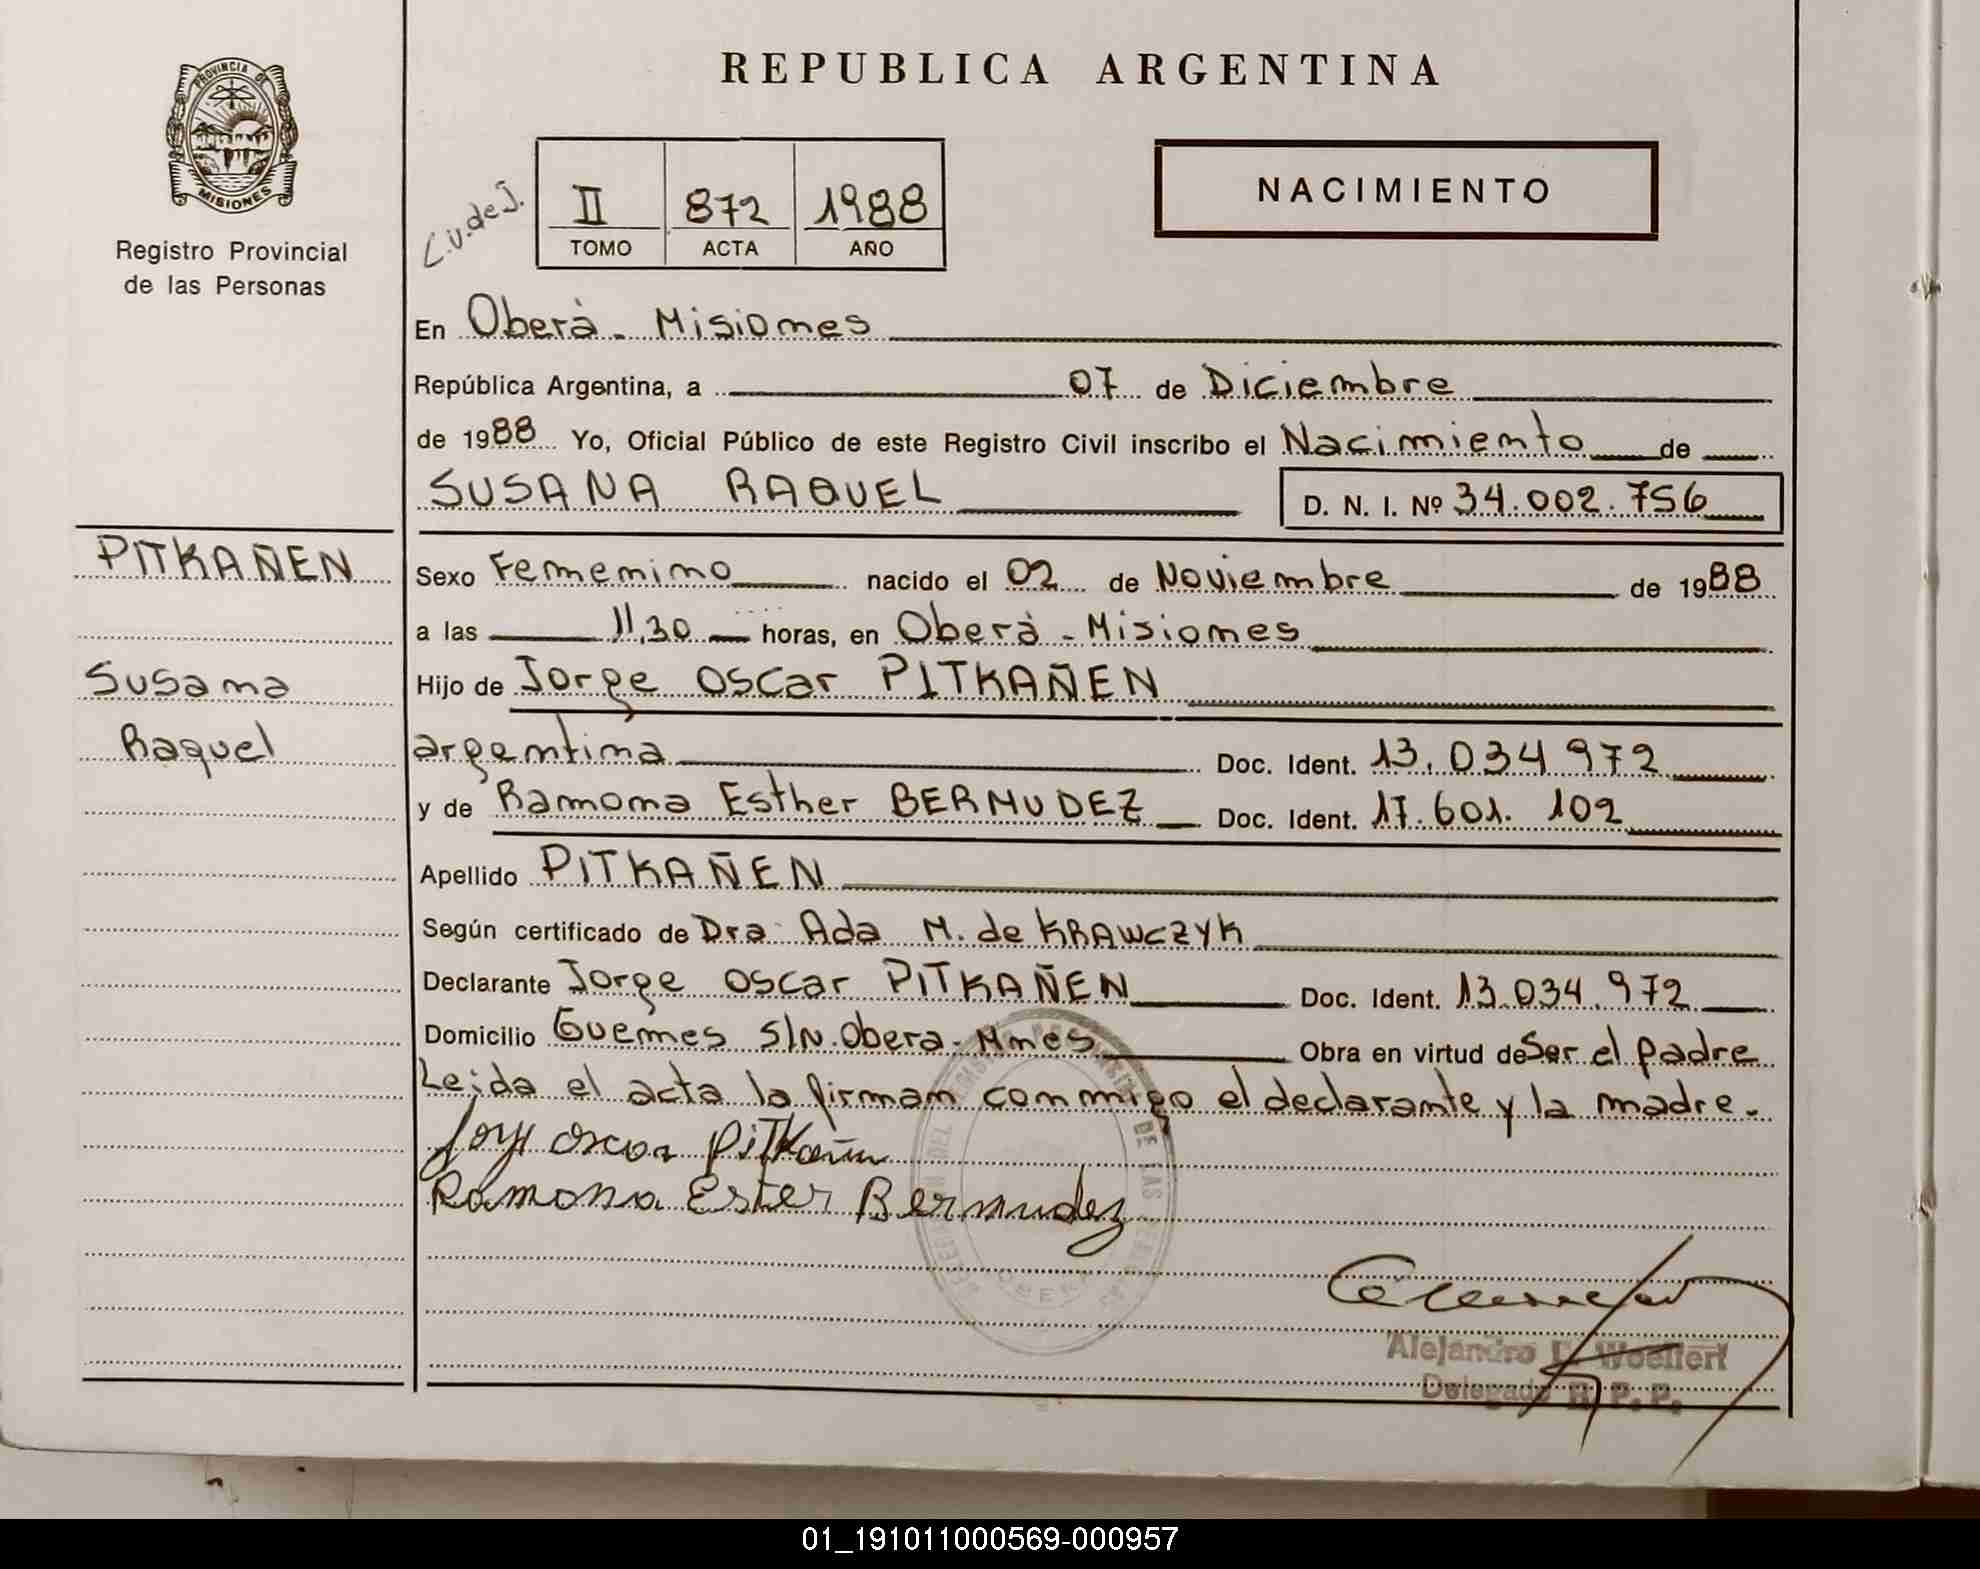 REPUBLICA ARGENTINA
PROVINCIA DE
MISIONES
Registro Provincial
de las Personas
L.U.deJ.
II 872 1988
TOMO ACTA AÑO
NACIMIENTO
En Oberà - Misiones
República Argentina, a 07 de Diciembre
de 1988 Yo, Oficial Público de este Registro Civil inscribo el Nacimiento de
SUSANA RAQUEL D. N. I. Nº 34.002.756
PITKAÑEN
Susana
Raquel
Sexo Femenino nacido el 02 de Noviembre de 1988
a las 11,30 horas, en Oberà - Misiones
Hijo de Jorge Oscar PITKAÑEN
argentina Doc. Ident. 13.034 972
y de Ramona Esther BERMUDEZ Doc. Ident. 17.601.102
Apellido PITKAÑEN
Según certificado de Dra Ada M. de KRAWCZYK
Declarante Jorge Oscar PITKAÑEN Doc. Ident. 13.034.972
Domicilio Guemes S/N. Obera - Mnes Obra en virtud de Ser el padre
Leida el acta la firman conmigo el declarante y la madre.
Jorge Oscar PiTKañen
Ramona Ester Bermudez
DEL REGISTRO PROVINCIAL DE LAS PERSONAS
OBERA
Alejandro Woelfert
Delegado R. P. P.
01_191011000569-000957